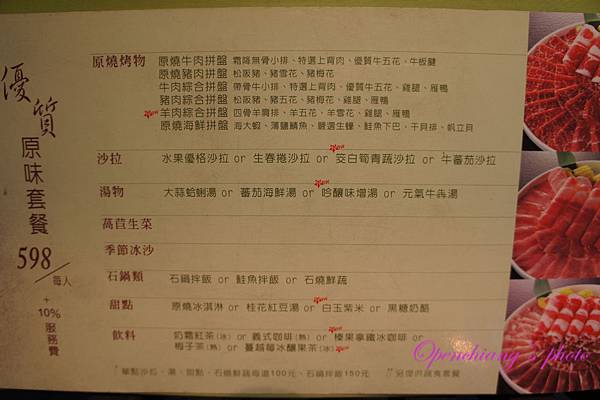 優質
原味套餐
598/每人
+
10%
服務費
原燒烤物 原燒牛肉拼盤 霜降無骨小排、特選上背肉、優質牛五花、牛板腱
原燒豬肉拼盤 松阪豬、豬雪花、豬梅花
牛肉綜合拼盤 帶骨牛小排、特選上背肉、優質牛五花、雞腿、雁鴨
豬肉綜合拼盤 松阪豬、豬五花、豬梅花、雞腿、雁鴨
羊肉綜合拼盤 四骨羊肩排、羊五花、羊雪花、雞腿、雁鴨
原燒海鮮拼盤 海大蝦、薄鹽鯖魚、嚴選生蠔、鮭魚下巴、干貝排、帆立貝
沙拉 水果優格沙拉 or 生春捲沙拉 or 茭白筍青蔬沙拉 or 牛蕃茄沙拉
湯物 大蒜蛤蜊湯 or 蕃茄海鮮湯 or 吟釀味增湯 or 元氣牛犇湯
萵苣生菜
季節冰沙
石鍋類 石鍋拌飯 or 鮭魚拌飯 or 石燒鮮蔬
甜點 原燒冰淇淋 or 桂花紅豆湯 or 白玉紫米 or 黑糖奶酪
飲料 奶霜紅茶(冰) or 義式咖啡(熱) or 榛果拿鐵冰咖啡 or
梅子茶(熱) or 蔓越莓冰釀果茶(冰)
單點沙拉、湯、甜點、石燒鮮蔬每道100元、石鍋拌飯150元
另提供蔬食套餐
Openchiang's photo